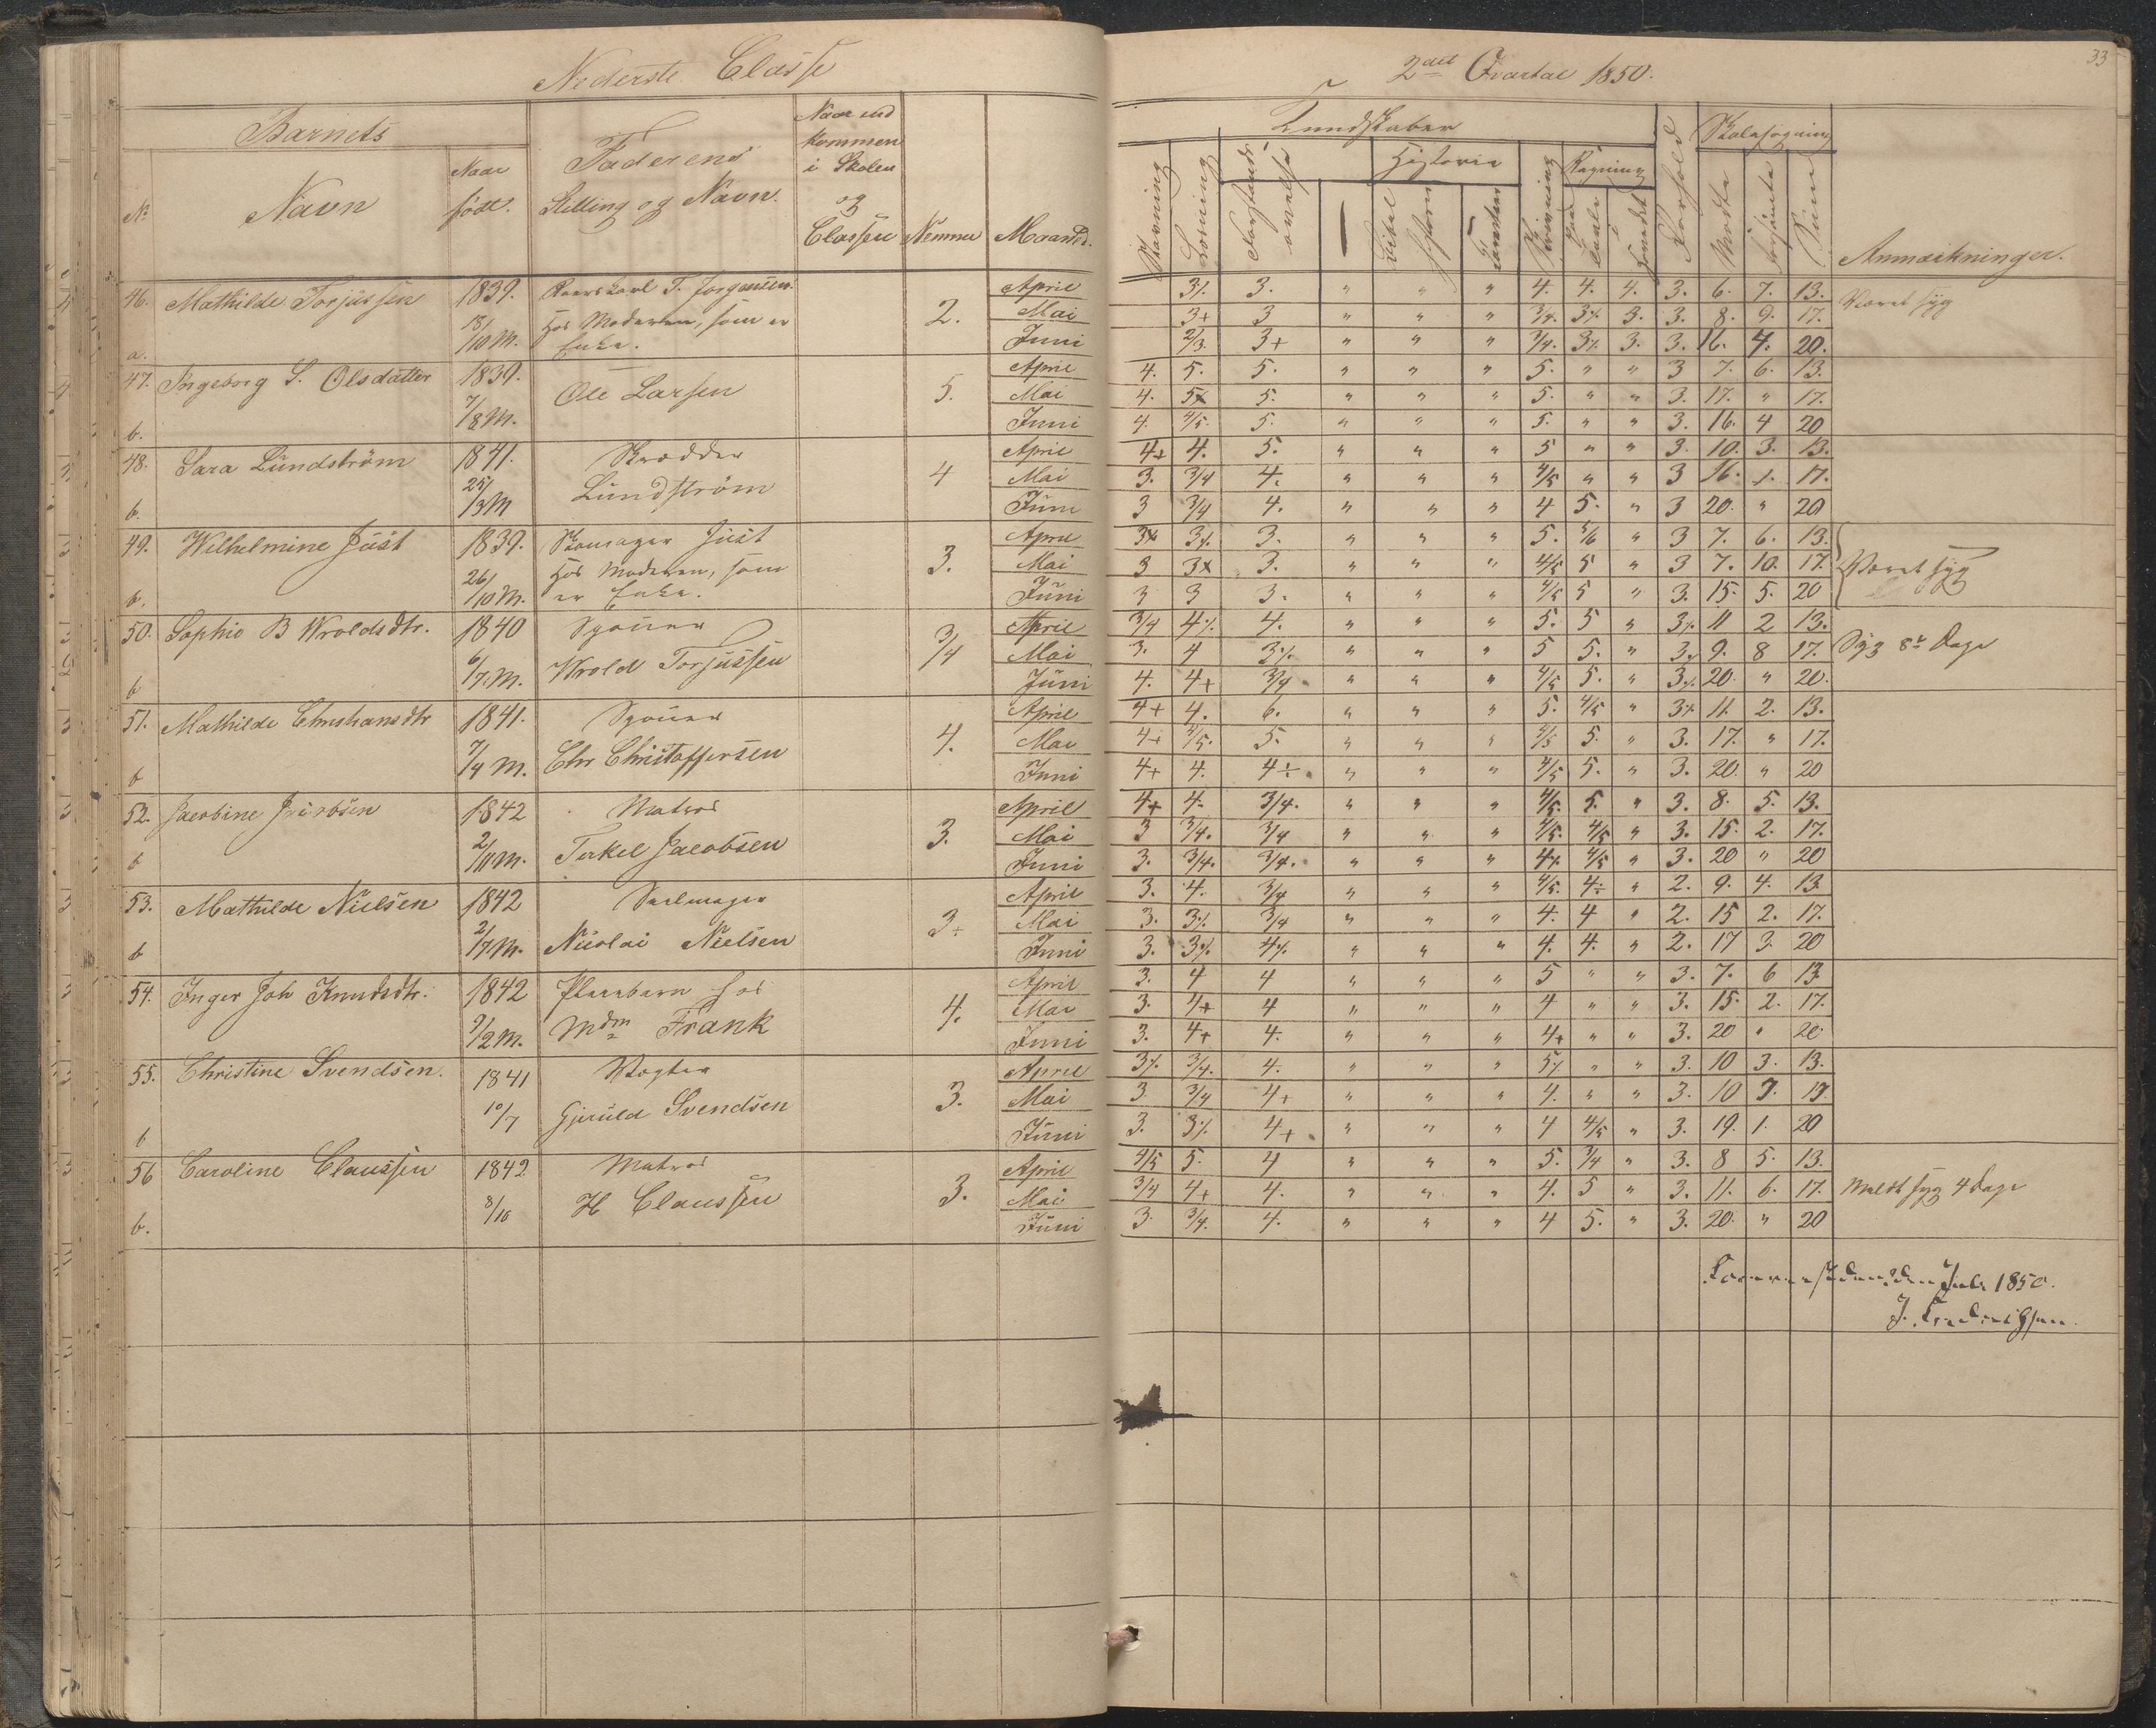 Nederste Classe
Barnets
No
Navn
Naar
født.
Faderens
Stilling og Navn.
Naar ind
kommen
i Skolen
og
Classen
Nemme
Maaned.
46. Mathilde Torjussen 1839. T. Jorgensen. 2. April
18/10 M. hos Moderen, som er Mai
a. Enke. Juni
47. Ingeborg S. Olsdatter 1839. Ole Larsen 5. April
7/8 M. Mai
b. Juni
48. Sara Lundström 1841. Skrædder 4 April
25/3 M Lundström Mai
b. Juni
49. Wilhelmine Just 1839. Skomager Just 3. April
26/10 M. hos Moderen, som Mai
b. er Enke. Juni
50. Sophie B Wroldsdtr. 1840 3/4 April
6/7 M. Wrold Torjussen Mai
b Juni
51. Mathilde Christiansdtr 1841. 4. April
7/4 M. Chr Christoffersen Mai
b Juni
52. Jacobine Jacobsen 1842 Matros 3. April
2/11 M. Terkel Jacobsen Mai
b Juni
53. Mathilde Nielsen 1842 Seelmager 3+ April
2/7 M. Nicolai Nielsen Mai
b Juni
54. Inger Joh Knudsdtr. 1842 Pleiebarn hos 4. April
9/2 M. Mdm Frank Mai
Juni
55. Christine Svendsen. 1841 Vægter 3. April
10/7 Gjeruld Svendsen Mai
b Juni
56 Caroline Claussen 1842 Matros 3. April
8/10 H Claussen Mai
b. Juni
33
2det Qvartal 1850.
Kundskaber
Stavning
Læsning
Forstands
øvelse
Historie
Bibel
historie
Skrivning
Regning
Paa
Tavle
Hovedet
Forhold
Skolesøgning
Mødte
Forsømte
Summa
Anmærkninger.
3% 3. " " " 4. 4. 4. 3. 6. 7. 13. Været syg
3+ 3 " " " 3/4. 3% 3. 3. 8. 9. 17.
2/3 3+ " " " 3/4. 3% 3. 3. 16. 4. 20.
4. 5. 5. " " " 5. " " 3 7. 6. 13.
4. 5x 5. " " " 5. " " 3. 17. " 17.
4. 4/5. 5. " " " 5. " " 3. 16. 4 20
4+ 4. 5. " " " 5 " " 3. 10. 3. 13.
3. 3/4 4. " " " 4/5 " " 3 16. 1. 17.
3 3/4 4. " " " 4 5. " 3 20. " 20
3% 3% 3. " " " 5. 5/6 " 3 7. 6. 13.
3 3x 3. " " " 4/5 5 " 3 7. 10. 17. Været syg
3 3 3. " " " 4/5 5 " 3. 15. 5. 20
3/4 4% 4. " " " 5. 5 " 3% 11 2 13.
3. 4 3% " " " 5 5. " 3% 9. 8 17. Syg 8te Dage
4. 4+ 3/4 " " " 4/5 5. " 3% 20. " 20.
4+ 4. 6. " " " 5. 4/5 " 3% 11. 2. 13.
4+ 4/5. 5. " " " 4/5 5. " 3. 17. " 17.
4+ 4. 4÷ " " " 4/5 5. " 3. 20. " 20
4+ 4. 3/4. " " " 4/5. 5. " 3. 8. 5. 13.
3 3/4. 3/4 " " " 4/5. 4/5 " 3. 15. 2. 17.
3. 3/4. 3/4. " " " 4% 4/5 " 3. 20 " 20
3. 4. 3/4 " " " 4/5. 4÷ " 2. 9. 4. 13.
3. 3% 3/4 " " " 4. 4 " 2. 15 2. 17.
3. 3% 4% " " " 4. 4. " 2. 17 3. 20
3. 4 4 " " " 5 " " 3. 7. 6 13
3. 4+ 4 " " " 4 " " 3. 15. 2. 17.
3. 4+ 4. " " " 4+ " " 3. 20 " 20
3% 3/4. 4. " " " 5% " " 3. 10 3. 13.
3 3/4 4+ " " " 4. " " 3. 10 7. 17.
3. 3% 4+ " " " 4 4/5 " 3. 19. 1. 20
4/5 5. 4 " " " 5. 3/4 " 3. 8 5. 13.
3/4 4+ 4. " " " 4. 5 " 3. 11. 6. 17. Meldt syg 4 Dage
3. 3/4. 4. " " " 4 5. " 3. 20. " 20
Juli 1850.
J. Fredrichsen.